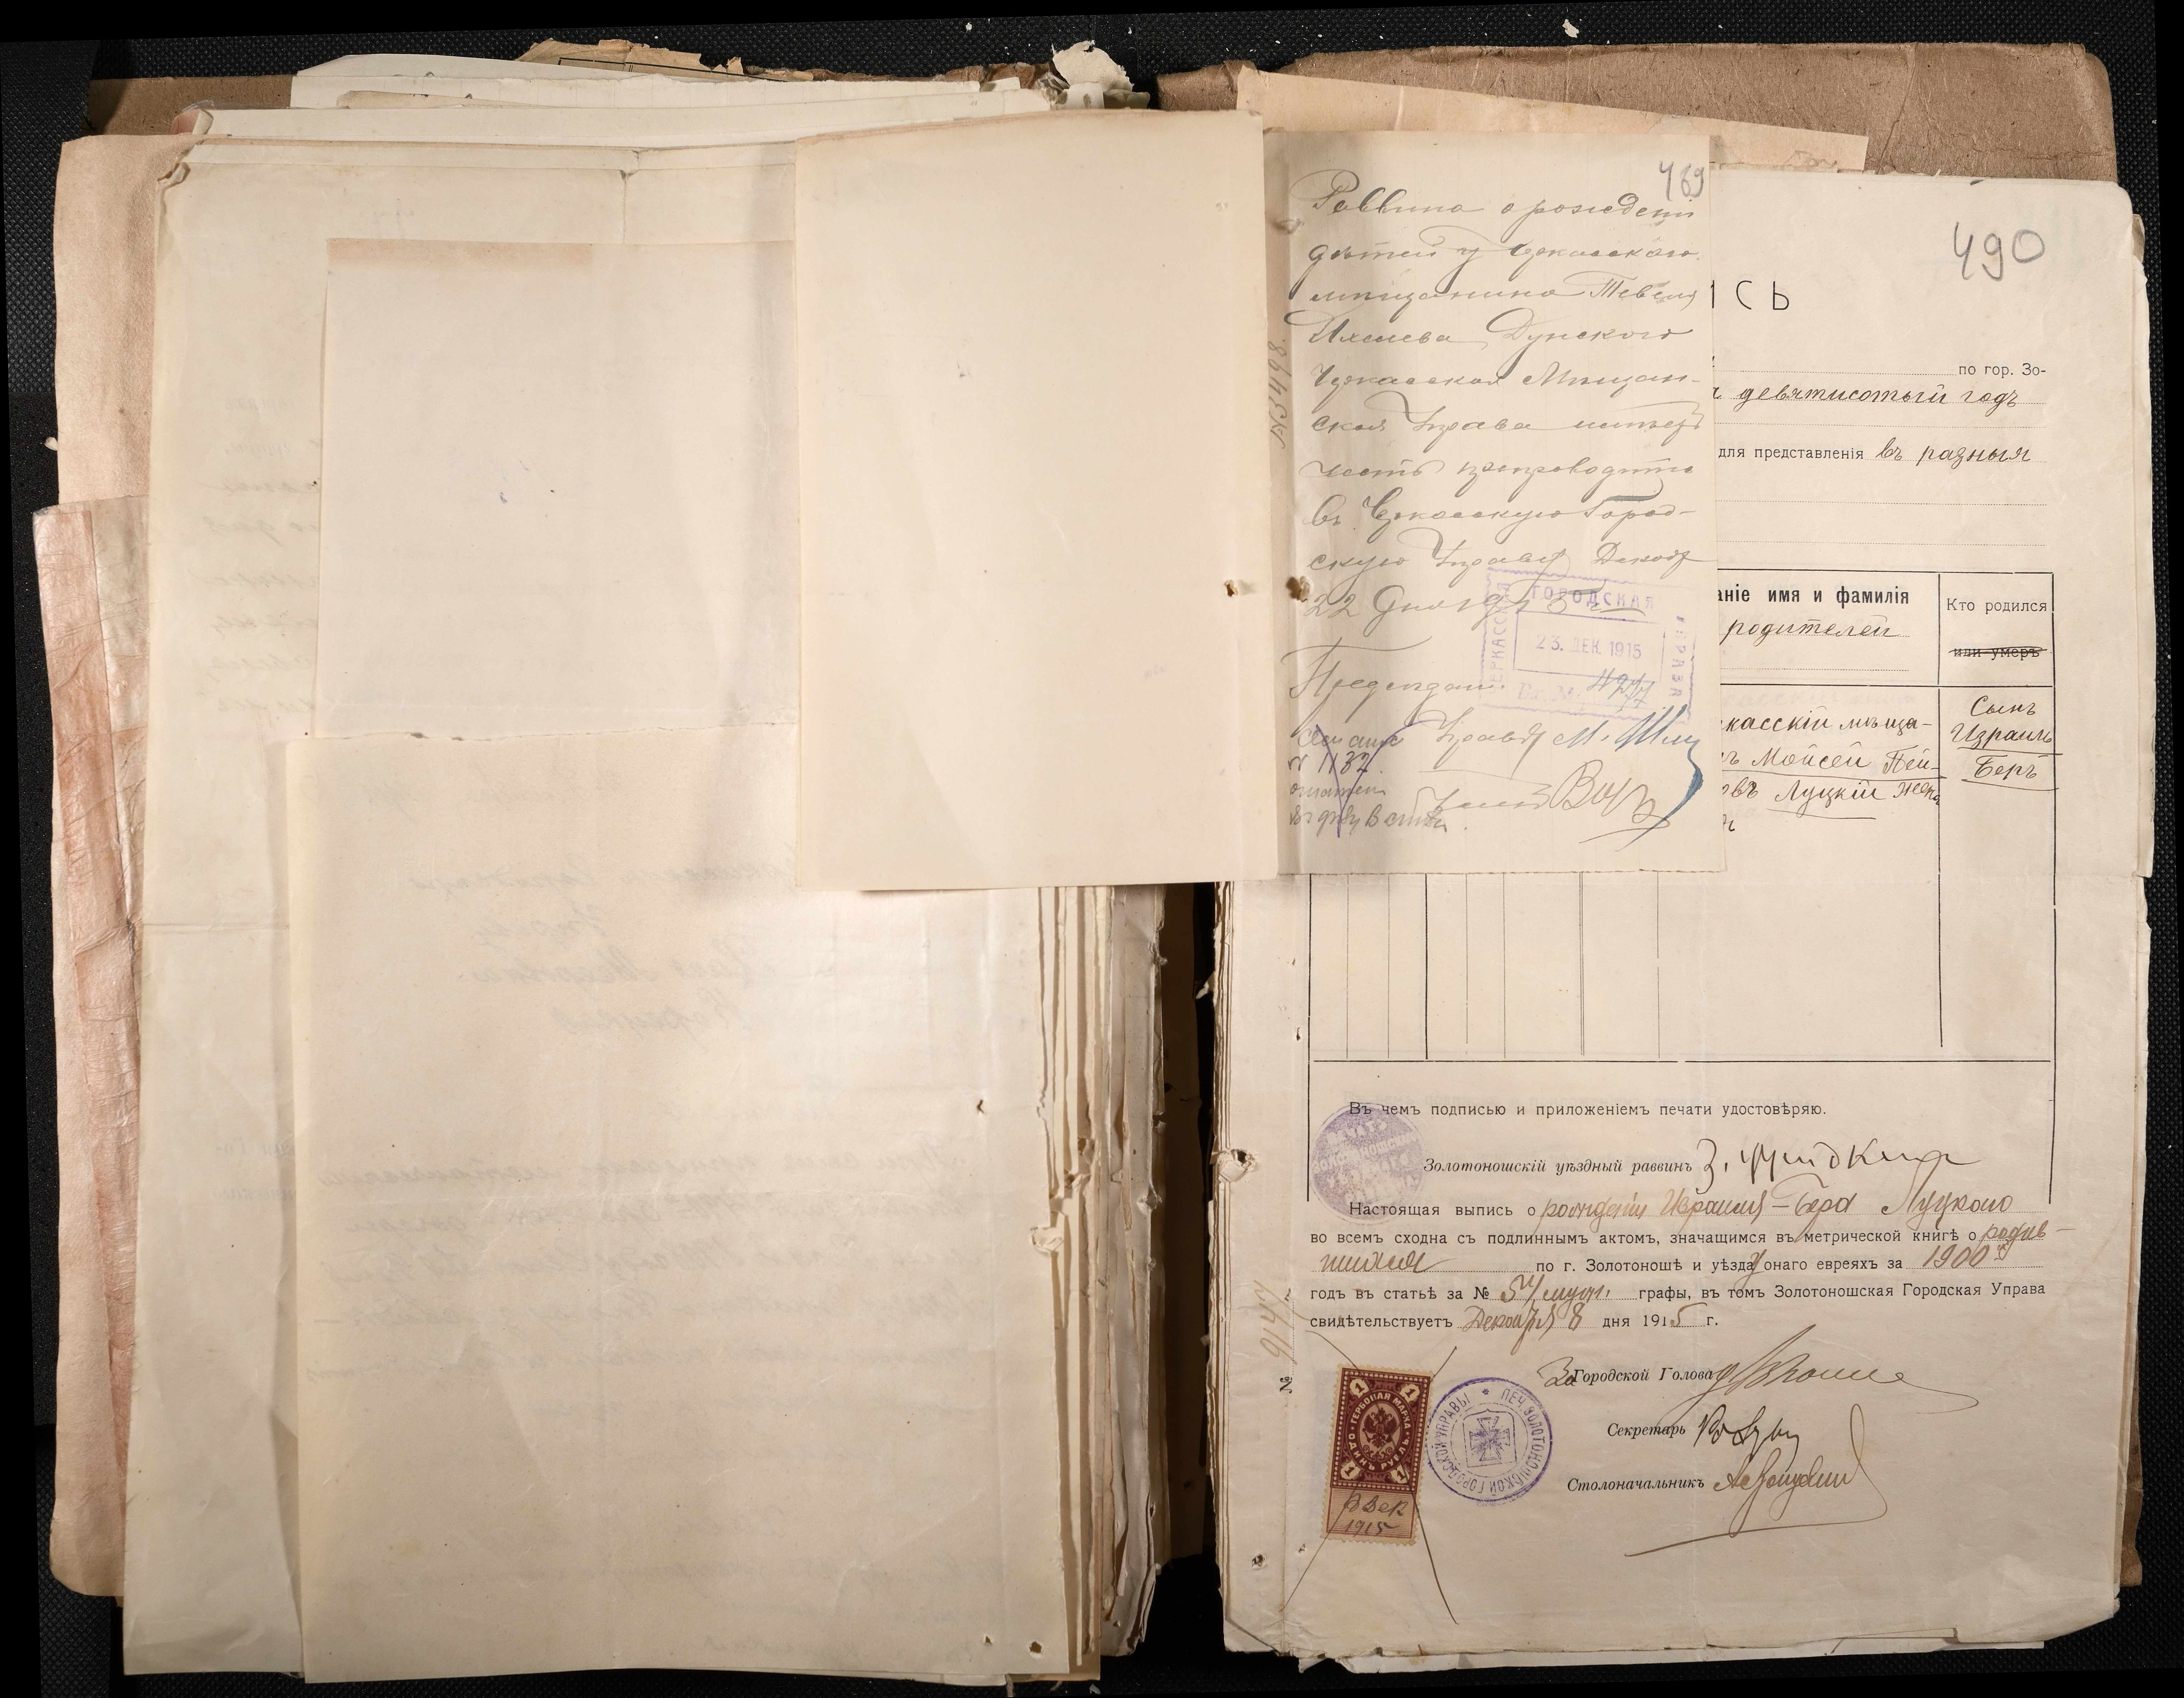 489
Раввина о рожденіи
дѣтей у Черкасскаго
мѣщанина Тевеля
Дунского
Черкасская Мѣщан-
ская Управа имѣетъ
честь препроводить
въ Черкасскую Город-
скую Управу Декабр
22 дня 1915
ЧЕРКАССКАЯ ГОРОДСКАЯ УПРАВА
23. ДЕК. 1915
Вх. № 4277
Предсѣдат.
Управы М.
№ 1132
490
ИСЬ
по гор. Зо-
девятисотый годъ
для представленія въ разныя
аніе имя и фамилія
родителей
Кто родился
или умеръ
касскій мѣща-
нъ Мойсей Пей-
овъ Луцкій жена
Сынъ
Израиль
Беръ
Въ чемъ подписью и приложеніемъ печати удостовѣряю.
Золотоношскій уѣздный раввинъ
Настоящая выпись о рожденіи Израиля-Бера Луцкого
во всемъ сходна съ подлиннымъ актомъ, значащимся въ метрической книгѣ о родив-
шихся по г. Золотоношѣ и уѣзда онаго евреяхъ за 1900й
годъ въ статьѣ за № муж. графы, въ томъ Золотоношская Городская Управа
свидѣтельствуетъ Декабря 8 дня 1915 г.
За Городской Голова
Секретарь
Столоначальникъ
№ 9147
ГЕРБОВАЯ МАРКА
ОДИНЪ РУБЛЬ
1
8 Дек
1915
ПЕЧ. ЗОЛОТОНОШСКОЙ ГОРОДСКОЙ УПРАВЫ